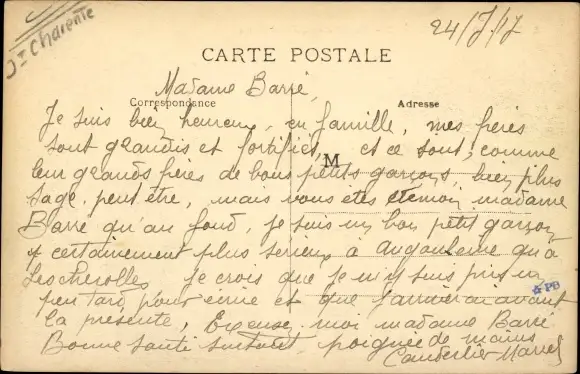 Dt Charente
24/7/17
CARTE POSTALE
Madame Barré,
Correspondance
Adresse
M
Je suis bien heureux, en famille, mes frères
sont grandis et fortifiés, et ce sont, comme
leur grands frères de bons petits garçons, bien plus
sage peut être, mais vous êtes témoin madame
Barré qu'au fond, je suis un bon petit garçon
et certainement plus serieux à Angoulème qu'à
Lescherolles je crois que je m'y suis pris un
peu tard pour écrire et que j'arriverai avant
la présente, Excusez moi madame Barré
Bonne santé surtout poignée de mains
PB